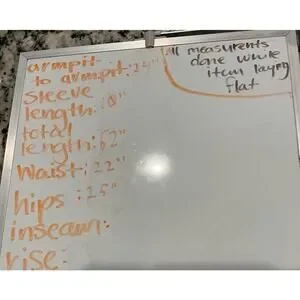 armpit
to armpit: 24"
sleeve
length:
total
length: 52"
waist: 22"
hips: 25"
inseam:
rise:
All measurements
done while
item laying
flat